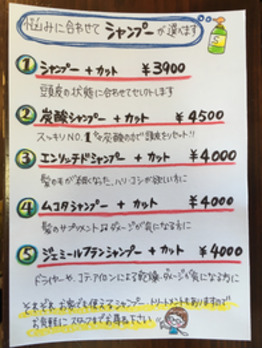 悩みに合わせて シャンプーが選べます
① シャンプー + カット ¥3900
頭皮の状態に合わせてセレクトします
② 炭酸シャンプー + カット ¥4500
スッキリNO.1 炭酸の泡で頭皮をリセット!!
③ エンリッチドシャンプー + カット ¥4000
髪の毛が細くなった、ハリ・コシが欲しい方に
④ ムコタシャンプー + カット ¥4000
髪のサプリメント ダメージが気になる方に
⑤ ジェミールフランシャンプー + カット ¥4000
ドライヤーや、コテ・アイロンによる乾燥・ダメージが気になる方に
それぞれ、お家でも使えるシャンプー、トリートメントもありますので
お気軽に スタッフまでお尋ね下さい